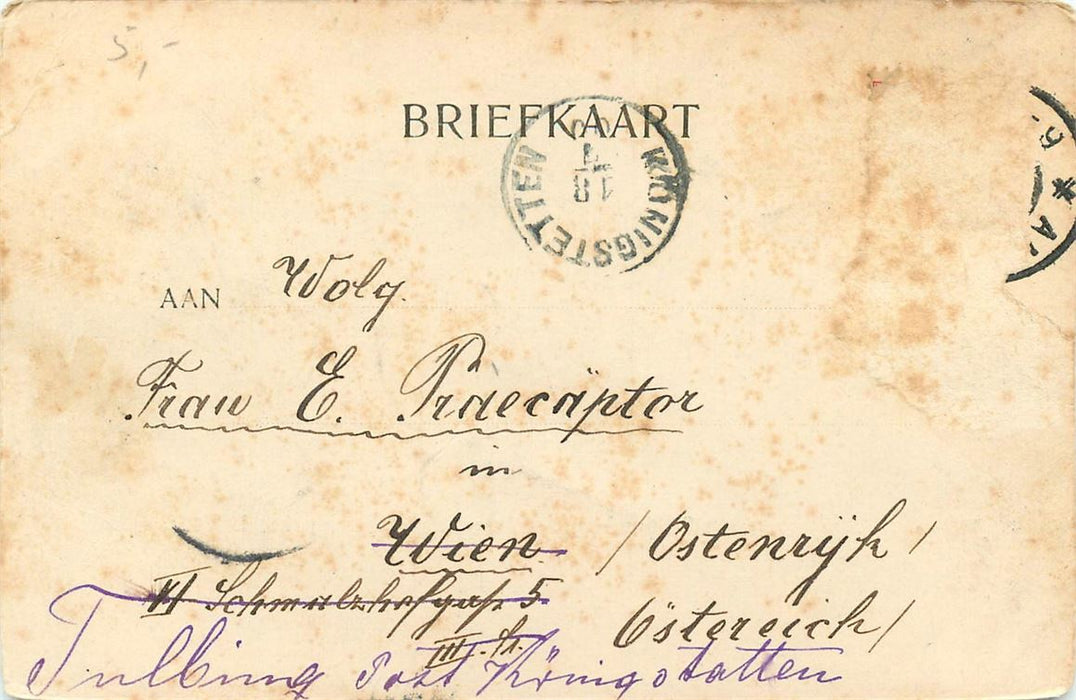 5,-
BRIEFKAART
KÖNIGSTETTEN
AAN Wolg.
Frau E. Praecäptor
in
Wien / Ostenrijk /
VI Schmalzhofgasse 5
Östereich /
III. St.
Tulbing Post Königstatten